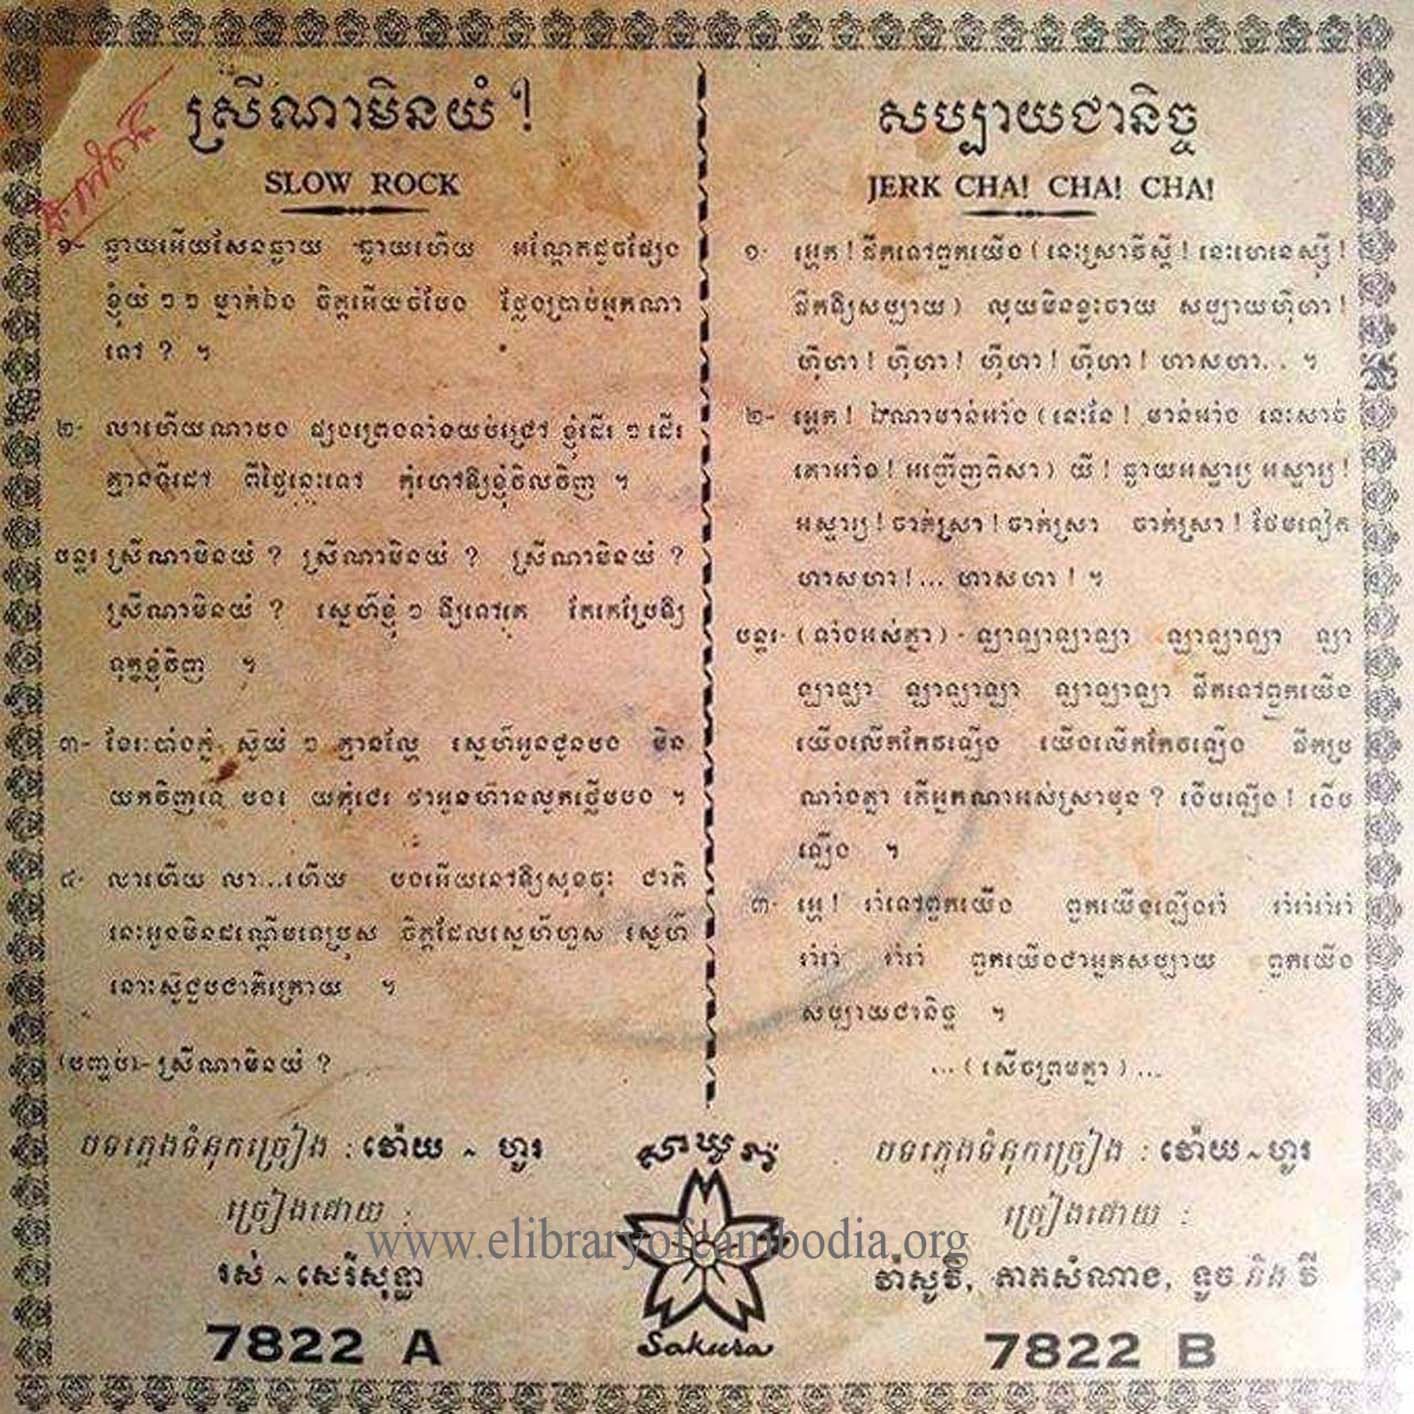 ស្រីណាមិនយំ ?
SLOW ROCK
១- ឆ្ងាយអើយសែនឆ្ងាយ ឆ្ងាយហើយ អណ្តែតដូចផ្សែង
ខ្ញុំយំ ១ ១ ម្នាក់ឯង ចិត្តអើយចំបែង ថ្លែងប្រាប់អ្នកណា
ទៅ ? ។
២- លាហើយណាបង ផ្សងព្រេងទាំងយប់ជ្រៅ ខ្ញុំដើរ ១ ដើរ
គ្មានទីដៅ ពីថ្ងៃនេះទៅ កុំហៅឱ្យខ្ញុំវិលវិញ ។
បន្ទរ ស្រីណាមិនយំ ? ស្រីណាមិនយំ ? ស្រីណាមិនយំ ?
ស្រីណាមិនយំ ? ស្នេហ៍ខ្ញុំ ១ ឱ្យទៅគេ តែគេប្រែឱ្យ
ទុក្ខខ្ញុំវិញ ។
៣- ខែរះបាំងភ្នំ ស៊ូយំ ១ គ្មានល្ហែ ស្នេហ៍អូនជូនបង មិន
យកវិញទេ បងរេ យកុំជេរ ថាអូនហ៊ានលួកថ្លើមបង ។
៤- លាហើយ លា...ហើយ បងអើយនៅឱ្យសុខចុះ ជាតិ
នេះអូនមិនដណ្តើមទេប្រុស ចិត្តដែលស្នេហ៍ហួស ស្នេហ៍
នោះស៊ូជួបជាតិក្រោយ ។
(បញ្ចប់)- ស្រីណាមិនយំ ?
បទភ្លេងទំនុកច្រៀង : វ៉ោយ ~ ហូរ
ច្រៀងដោយ :
រស់ ~ សេរីសុទ្ធា
7822 A
សប្បាយជានិច្ច
JERK CHA! CHA! CHA!
១- អ្ហេក ! ផឹកទៅពួកយើង ( នេះស្រាវីស្គី ! នេះហេនេស្ស៊ី !
ផឹកឱ្យសប្បាយ ) លុយមិនខ្វះចាយ សប្បាយហ៊ីហា !
ហ៊ីហា ! ហ៊ីហា ! ហ៊ីហា ! ហ៊ីហា ! ហាសហា.. ។
២- អ្ហេក ! ឯណាមាន់អាំង ( នេះនែ ! មាន់អាំង នេះសាច់
គោអាំង ! អញ្ជើញពិសា ) យី ! ឆ្ងាយអស្ចារ្យ អស្ចារ្យ !
អស្ចារ្យ ! ចាក់ស្រា ! ចាក់ស្រា ចាក់ស្រា ! ថែមទៀត
ហាសហា !... ហាសហា ! ។
បន្ទរ- ( ទាំងអស់គ្នា ) - ឡាឡាឡាឡា ឡាឡាឡា ឡា
ឡាឡា ឡាឡាឡា ឡាឡាឡា ផឹកទៅពួកយើង
យើងលើកកែវឡើង យើងលើកកែវឡើង ផឹកប្រ
ណាំងគ្នា តើអ្នកណាអស់ស្រាមុន ? ងើបឡើង ! ងើប
ឡើង ។
៣- អ្ហេ ! រាំទៅពួកយើង ពួកយើងឡើងរាំ រាំរាំរាំរាំ
រាំរាំ រាំរាំ ពួកយើងជាអ្នកសប្បាយ ពួកយើង
សប្បាយជានិច្ច ។
... ( សើចព្រមគ្នា ) ...
បទភ្លេងទំនុកច្រៀង : វ៉ោយ ~ ហូរ
ច្រៀងដោយ :
វ៉ាសូវី, តាតសំណាង, ទូច និង វី
7822 B
សាឃូរ៉ា
Sakura
www.elibraryofcambodia.org